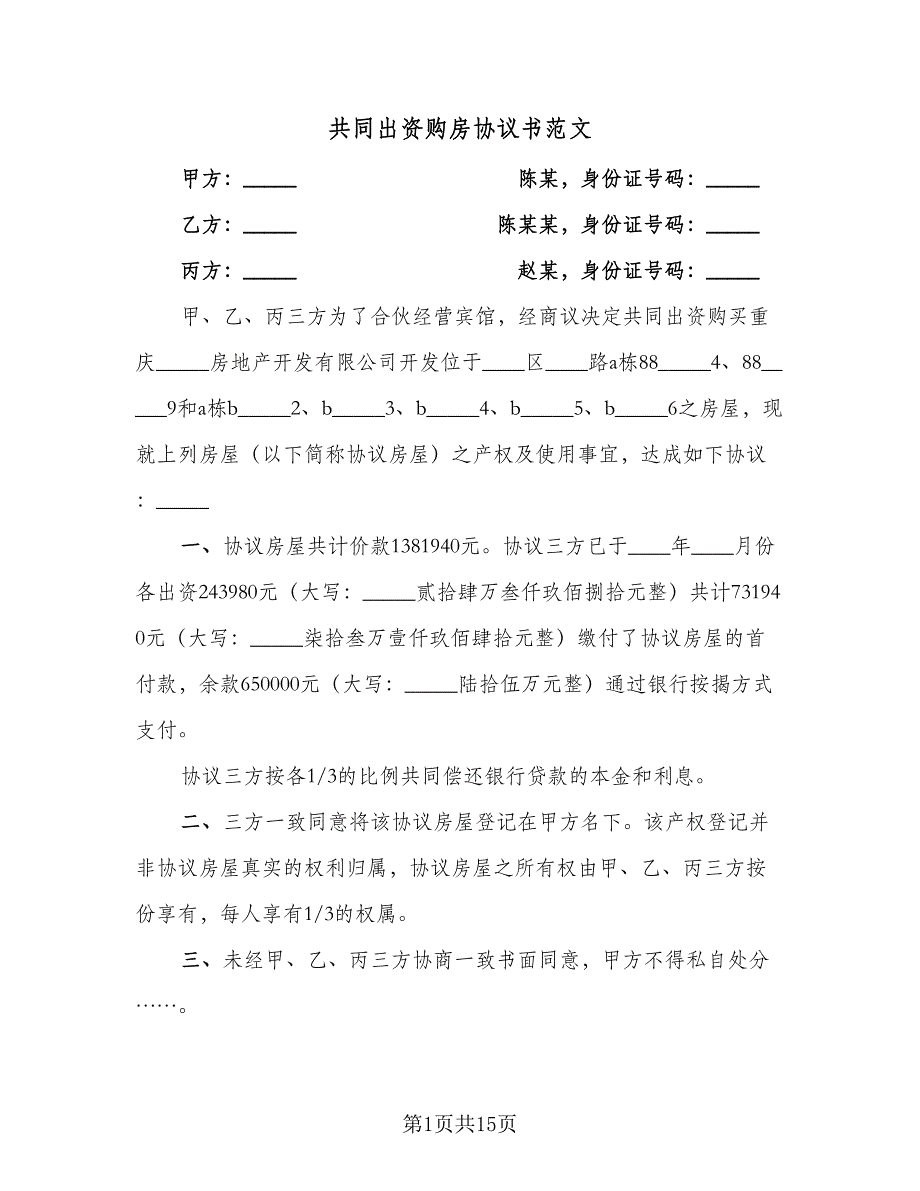 共同出资购房协议书范文
甲方：_____ 陈某，身份证号码：_____
乙方：_____ 陈某某，身份证号码：_____
丙方：_____ 赵某，身份证号码：_____
甲、乙、丙三方为了合伙经营宾馆，经商议决定共同出资购买重
庆_____房地产开发有限公司开发位于____区____路a栋88_____4、88__
___9和a栋b_____2、b_____3、b_____4、b_____5、b_____6之房屋，现
就上列房屋（以下简称协议房屋）之产权及使用事宜，达成如下协议
：_____
一、协议房屋共计价款1381940元。协议三方已于____年____月份
各出资243980元（大写：_____贰拾肆万叁仟玖佰捌拾元整）共计73194
0元（大写：_____柒拾叁万壹仟玖佰肆拾元整）缴付了协议房屋的首
付款，余款650000元（大写：_____陆拾伍万元整）通过银行按揭方式
支付。
协议三方按各1/3的比例共同偿还银行贷款的本金和利息。
二、三方一致同意将该协议房屋登记在甲方名下。该产权登记并
非协议房屋真实的权利归属，协议房屋之所有权由甲、乙、丙三方按
份享有，每人享有1/3的权属。
三、未经甲、乙、丙三方协商一致书面同意，甲方不得私自处分
……。
第1页共15页